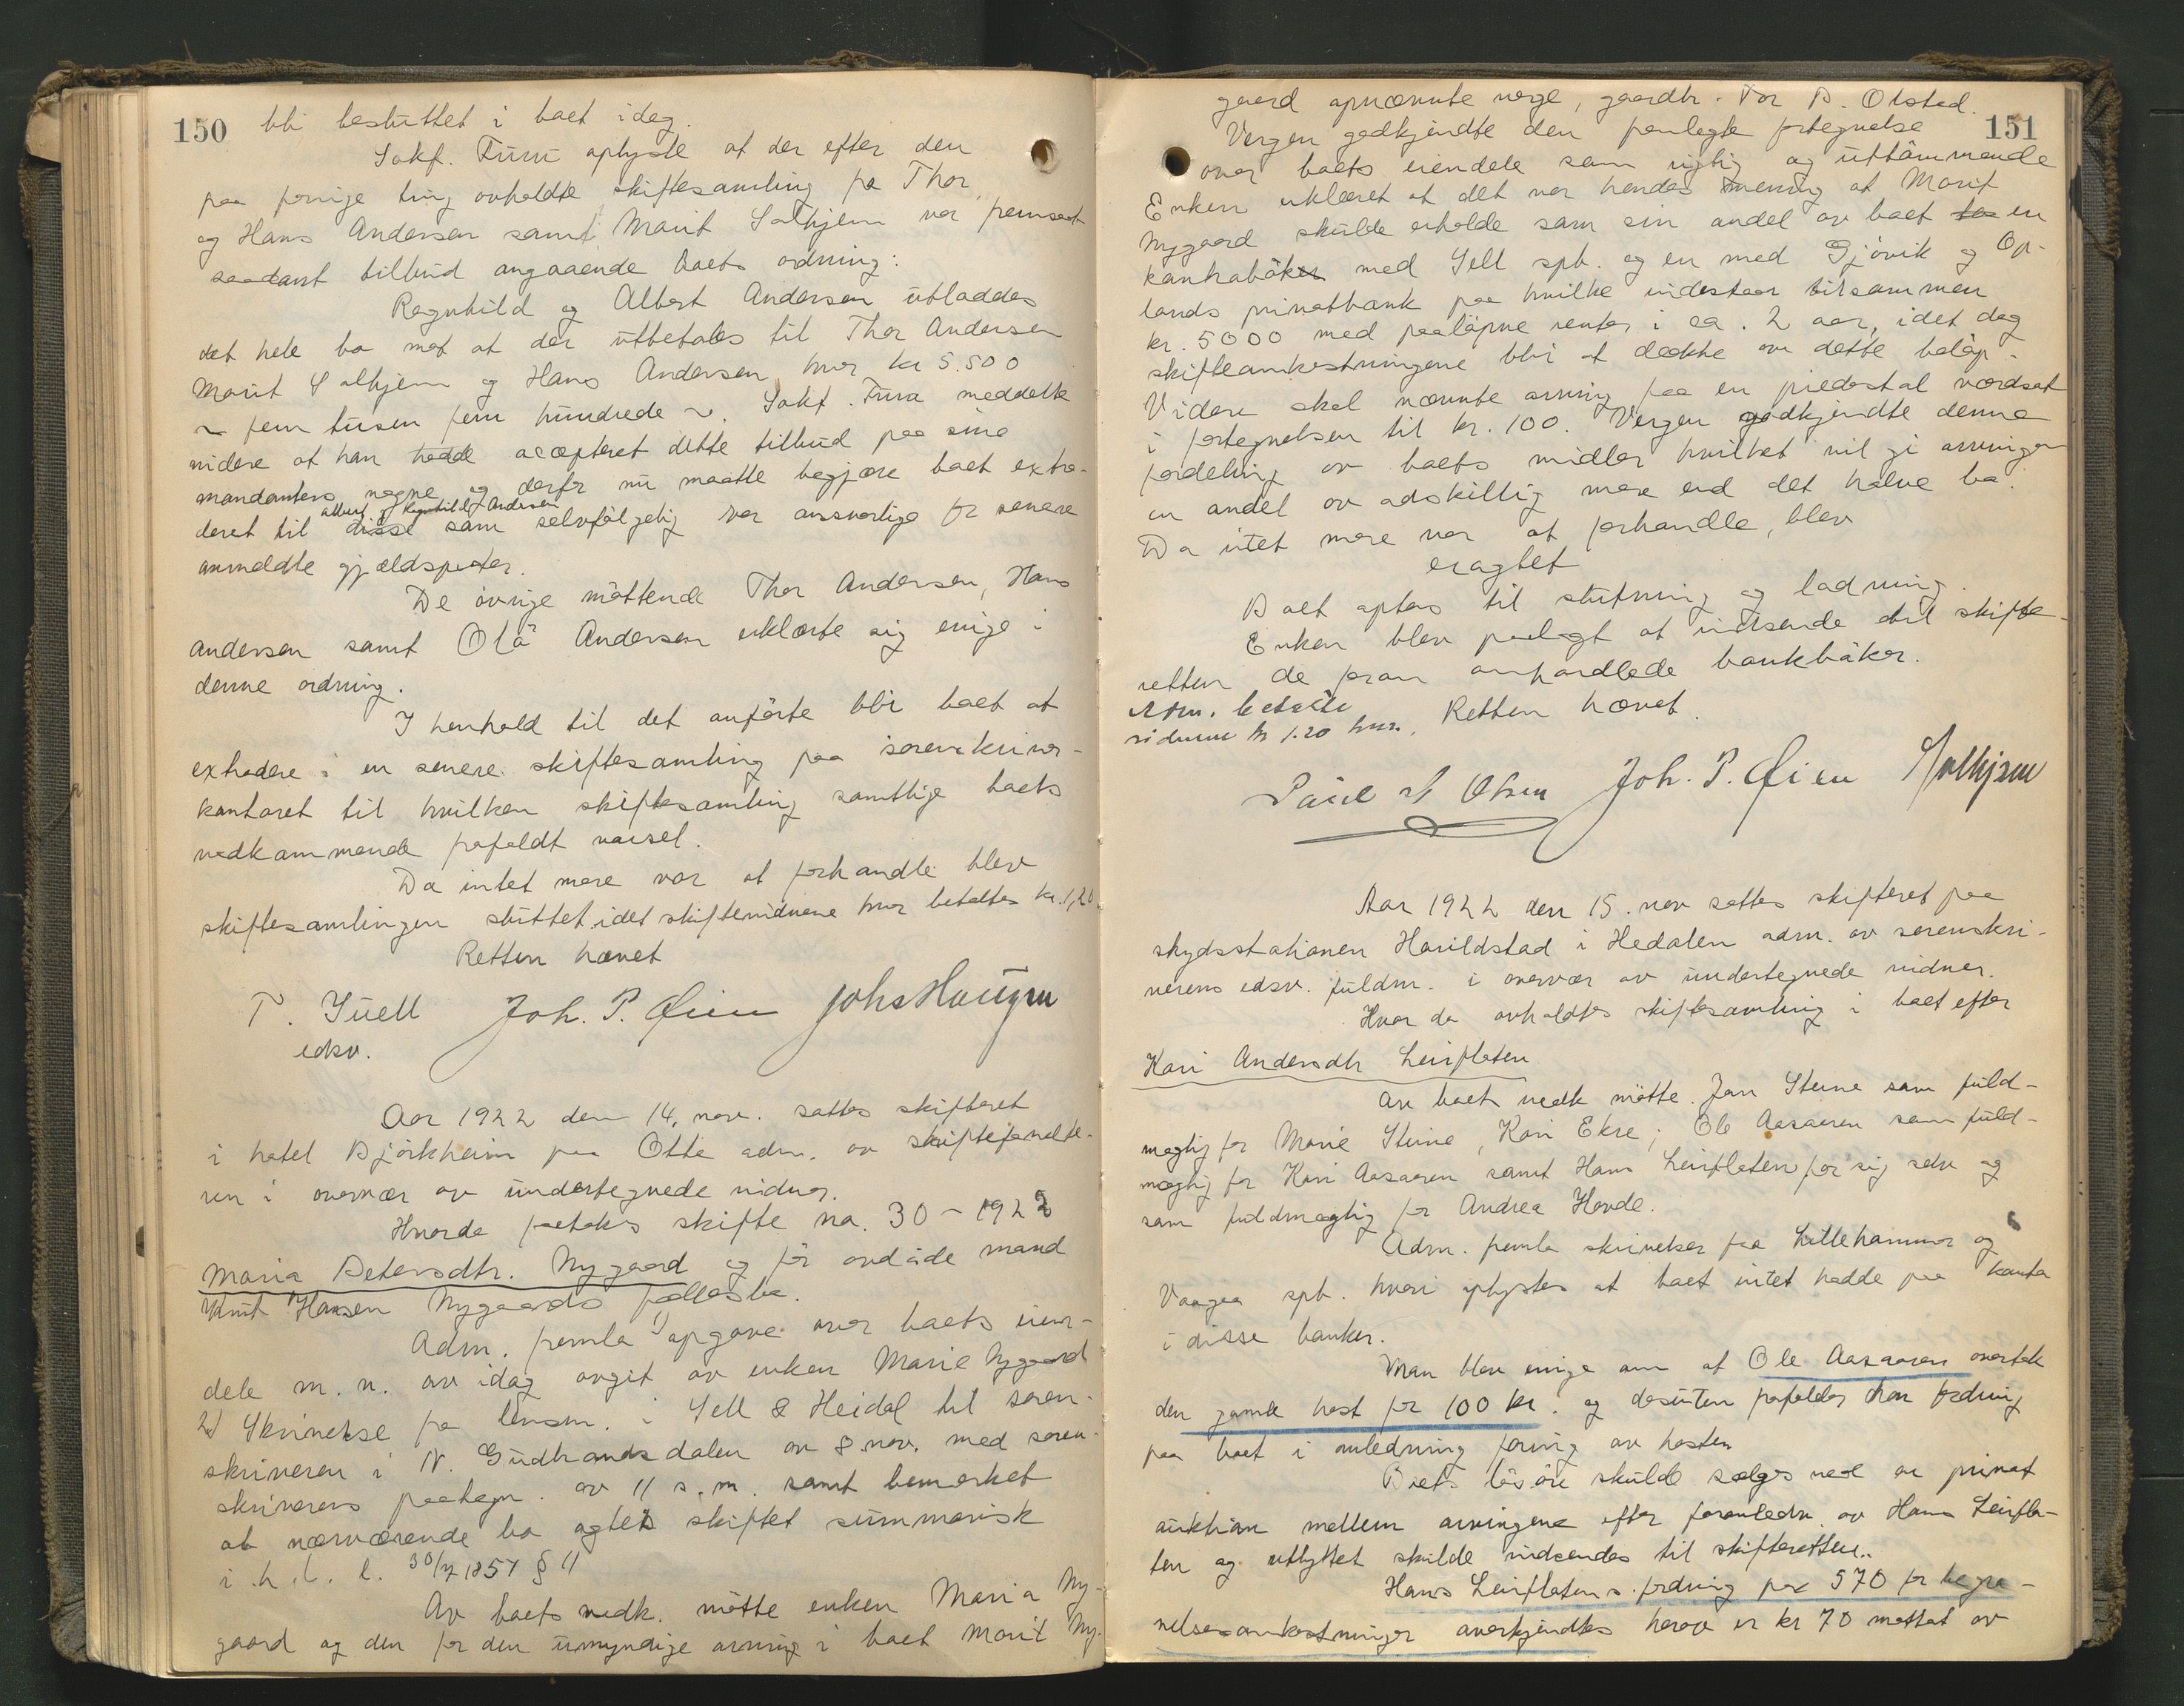 150
bli besluttet i boet idag.
Sakf. Furu oplyste at der efter den
paa forrige ting avholdte skiftesamling fra Thor
og Hans Andersen samt Marit Solhjem var fremsat
saadant tilbud angaaende boets ordning:
Ragnhild og Albert Andersen utloddes
det hele bo mot at der utbetales til Thor Andersen
Marit Solhjem og Hans Andersen hver kr 5.500
~ fem tusen fem hundrede ~. Sakf. Furu meddelte
videre at han hadde acceptert dette tilbud paa sine
mandanters vegne og derfor nu maatte begjære boet extra-
Albert og Ragnhild Andersen
deret til disse som selvfølgelig var ansvarlige for senere
anmeldte gjældsposter.
De øvrige møttende Thor Andersen, Hans
Andersen samt Ola Andersen erklærte sig enige i
denne ordning.
I henhold til det anførte blir boet at
extradere i en senere skiftesamling paa sorenskriver-
kontoret til hvilken skiftesamling samtlige boets
vedkommende frafaldt varsel.
Da intet mere var at forhandle blev
skiftesamlingen sluttet idet skiftevidnene hver betaltes kr. 1,20.
Retten hævet
T. Juell Joh. P. Øien Johs Haugen
edsv.
Aar 1922 den 14. nov. sattes skifteret
i hotel Bjørkheim paa Otta adm. av skifteforvalte-
ren i overvær av undertegnede vidner.
Hvorda foretokes skifte no. 30 - 1922
Maria Petersdtr. Nygaard og før avdøde mand
Knut Hansen Nygaards fællesbo.
Adm. fremla 1) opgave over boets eien-
dele m. v. av idag avgit av enken Marie Nygaard
2) Skrivelse fra lensm. i Sell & Heidal til soren-
skriveren i N. Gudbrandsdalen av 8. nov. med soren-
skriverens paategn. av 11 s. m. samt bemerket
at nærværende bo agtes skiftet summarisk
i. h. t. l. 30/7 1851 § 11
Av boets vedk. møtte enken Maria Ny-
gaard og den for den umyndige arving i boet Marit Ny-
151
gaard opnævnte verge, gaardbr. Tor P. Olstad.
Vergen godkjendte den fremlagte fortegnelse
over boets eiendele som rigtig og uttømmende
Enken erklæret at det var hendes mening at Marit
Nygaard skulde erholde som sin andel av boet to en
kontrabøker med Sell spb. og en med Gjøvik og Op-
lands privatbank paa hvilke indestaar tilsammen
kr. 5000 med paaløpne renter i ca. 2 aar, idet dog
skifteomkostningene blir at dække av dette beløp.
Videre skal nævnte arving faa en piedestal værdsat
i fortegnelsen til kr. 100. Vergen godkjendte denne
fordeling av boets midler hvilket vil gi arvingen
en andel av adskillig mere end det halve bo.
Da intet mere var at forhandle, blev
eragtet
Boet optas til slutning og lodning.
Enken blev paalagt at indsende til skifte-
retten de foran omhandlede bankbøker.
Adm. betalte
vidnene kr 1.20 hver. Retten hævet.
Paul A Olsen Joh. P. Øien Solhjem
Aar 1922 den 15. nov sattes skifteret paa
skydsstationen Harildstad i Hedalen adm. av sorenskri-
verens edsv. fuldm. i overvær av undertegnede vidner.
Hvor da avholdtes skiftesamling i boet efter
Kari Andersdtr Leirflaten
Av boets vedk møtte Jan Steine som fuld-
mægtig for Marie Steine, Kari Ekre; Ole Aasaaren som fuld-
mægtig for Kari Aasaaren samt Hans Leirflaten for sig selv og
som fuldmægtig for Andrea Hovde.
Adm. fremla skrivelser fra Lillehammer og
Vaagaa spb. hvori oplystes at boet intet hadde paa konto
i disse banker.
Man blev enige om at Ole Aasaaren overtok
den gamle hest for 100 kr. og desuten frafalder han fordring
paa boet i anledning foring av hesten
Boets løsøre skulde sælges ved en privat
auktion mellem arvingene efter foranledn. av Hans Leirfla-
ten og utbyttet skulde indsendes til skifteretten.
Hans Leirflatens fordring paa 570 for begra-
velsesomkostninger anerkjendtes herav er kr 70 mottat av